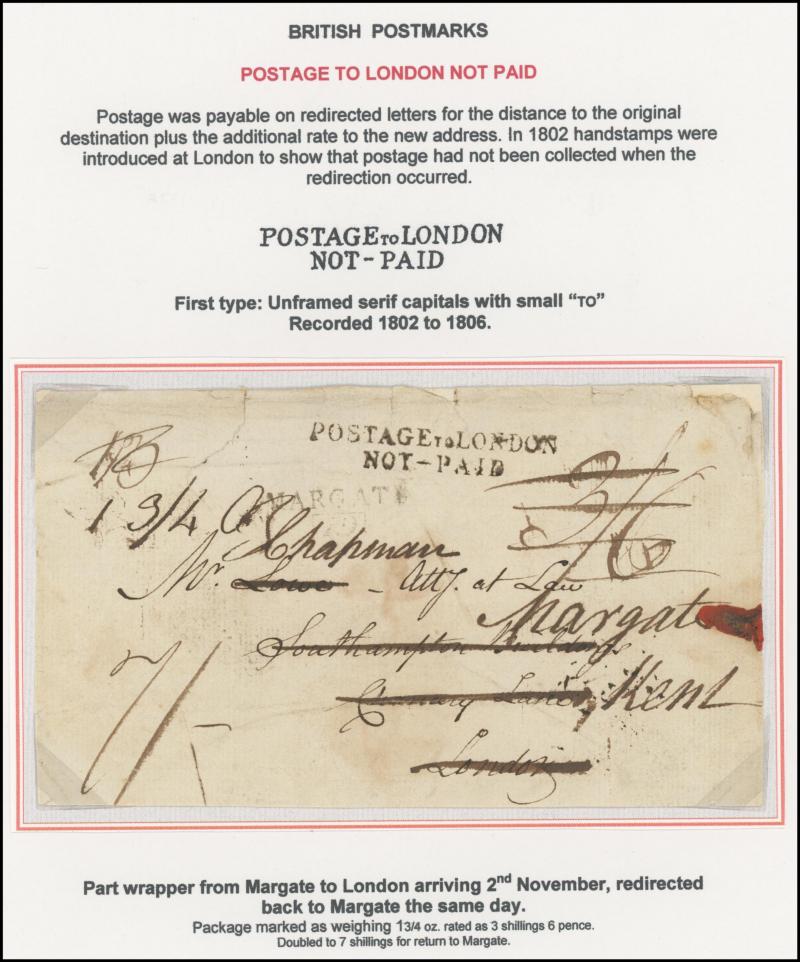 BRITISH POSTMARKS
POSTAGE TO LONDON NOT PAID
Postage was payable on redirected letters for the distance to the original
destination plus the additional rate to the new address. In 1802 handstamps were
introduced at London to show that postage had not been collected when the
redirection occurred.
POSTAGE TO LONDON
NOT-PAID
First type: Unframed serif capitals with small “TO”
Recorded 1802 to 1806.
POSTAGE TO LONDON
NOT-PAID
MARGATE
1 3/4
3/6
Chapman
Mr. Lowe - Atty. at Law
Margate
Southampton Buildings
Chancery Lane Kent
7/-
London
Part wrapper from Margate to London arriving 2nd November, redirected
back to Margate the same day.
Package marked as weighing 13/4 oz. rated as 3 shillings 6 pence.
Doubled to 7 shillings for return to Margate.